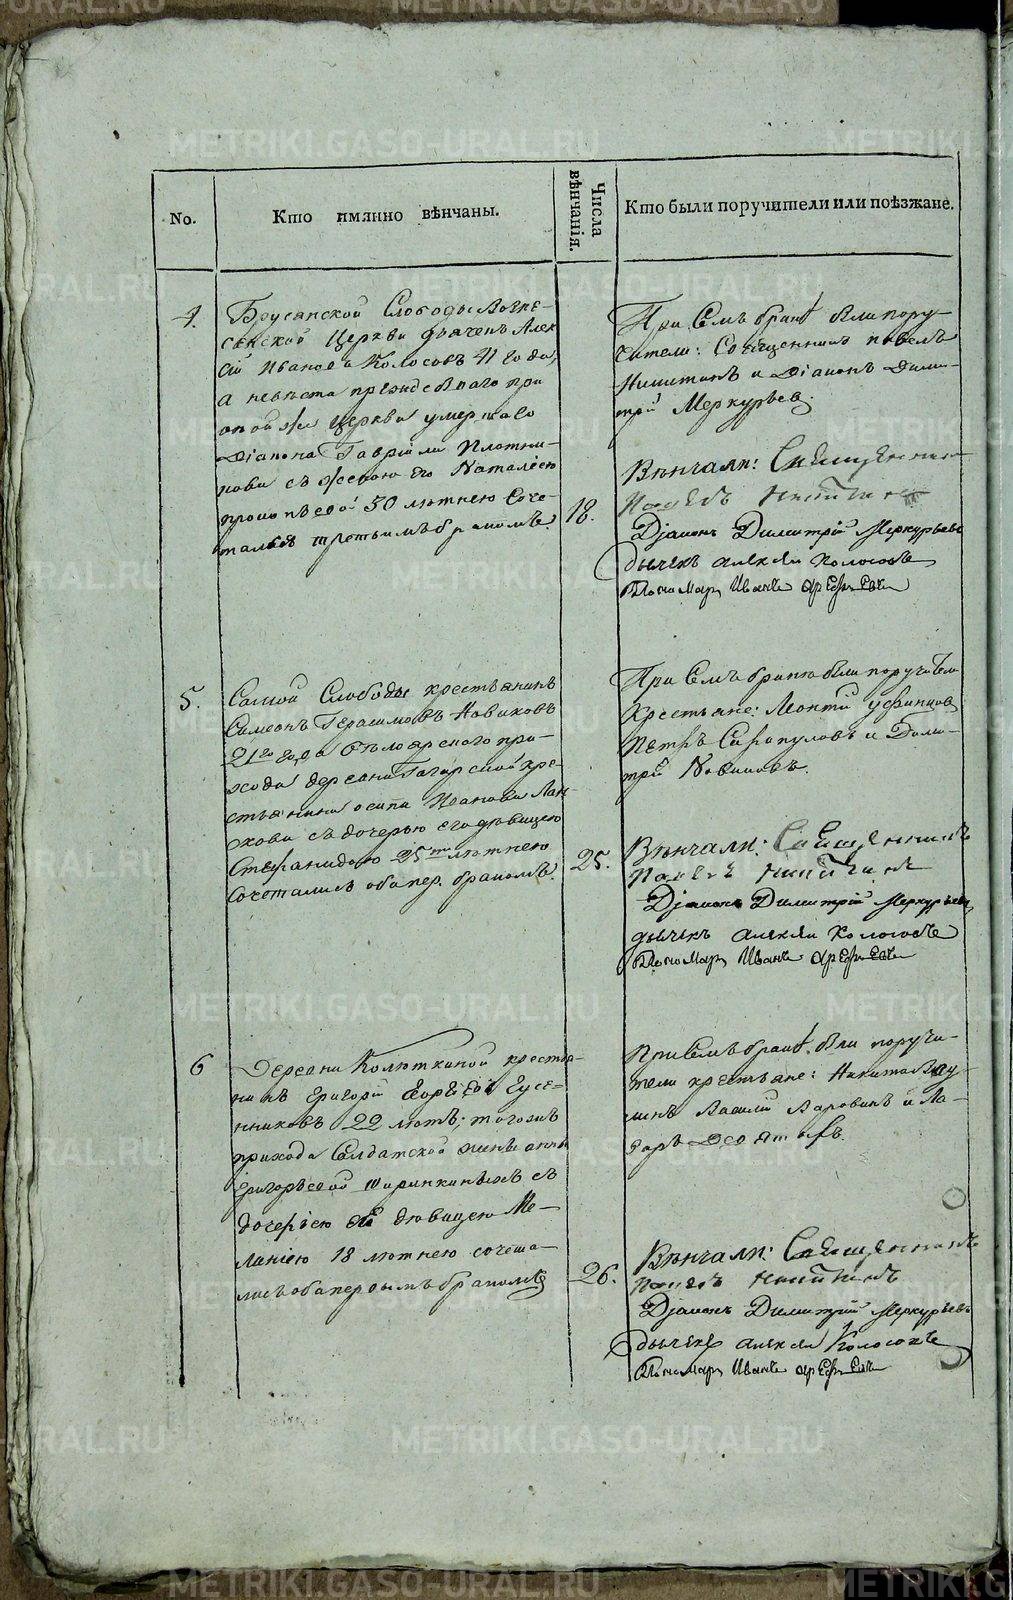 No.
Кто имянно вѣнчаны.
Числа вѣнчанія.
Кто были поручители или поѣзжане.
4.
Брусянской Слободы Возне-
сенской Церкви дьячекъ Алек
сій Ивановъ Колосовъ 41 года,
а невѣста преждебываго при
оной же Церкви умершаго
Діакона Гавріила Плотни-
кова съ женою его Наталіею
Прокопьевой 30 лѣтнею Соче-
тались третьимъ бракомъ.
18.
При Семъ бракѣ были пору-
чители: Священникъ Павелъ
Никитинъ и Діаконъ Дими-
трій Меркурьев.
Вѣнчали: Священникъ
Павелъ Никитинъ
Діаконъ Димитрій Меркурьевъ
дьячекъ алексѣй Колосовъ
Пономарь Иванъ арефьевъ
5.
Самой Слободы крестьянинъ
Симеонъ Герасимовъ Новиковъ
21го года Бѣлоярского при-
хода деревни Гагарской кре-
стьянина осипа Иванова Лан-
скова съ дочерью его дѣвицею
Стефанидою 25ти лѣтнею
Сочетались оба пер. бракомъ.
25.
При Семъ бракѣ были поручители
Крестьяне:
Петръ Сарапуловъ и Дими-
трій Новиковъ.
Вѣнчали: Священникъ
Павелъ Никитинъ
Діаконъ Димитрій Меркурьевъ
дьячекъ алексѣй Колосовъ
Пономарь Иванъ арефьевъ
6
Деревни Колюткиной крестья-
нинъ Григорій Гусе-
нниковъ 22 лѣтъ; тогожъ
прихода Солдатской жены анны
Григорьевой Ширинкиныхъ съ
дочерьею ея дѣвицею Ме-
ланіею 18 лѣтнею сочета-
лись оба первымъ бракомъ
26.
При Семъ бракѣ были поручи-
тели крестьяне: Никита
Василій Варовинъ и Ла-
зарь
Вѣнчали: Священникъ
Павелъ Никитинъ
Діаконъ Димитрій Меркурьевъ
дьячекъ алексѣй Колосовъ
Пономарь Иванъ арефьевъ
METRIKI.GASO-URAL.RU